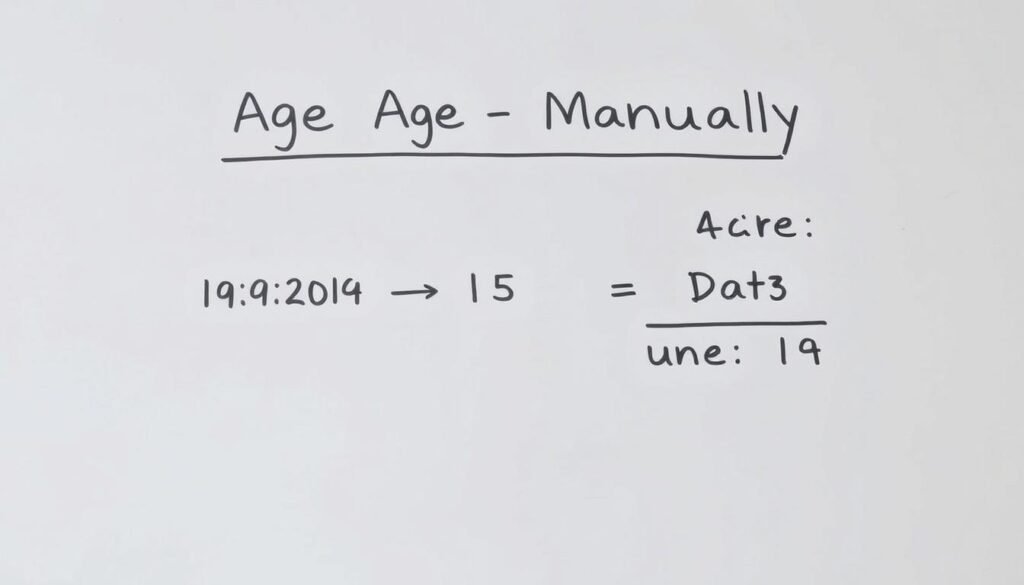 Age Age - Manually
4cire:
19:9:2019 → 15 = Dat3
une: 19